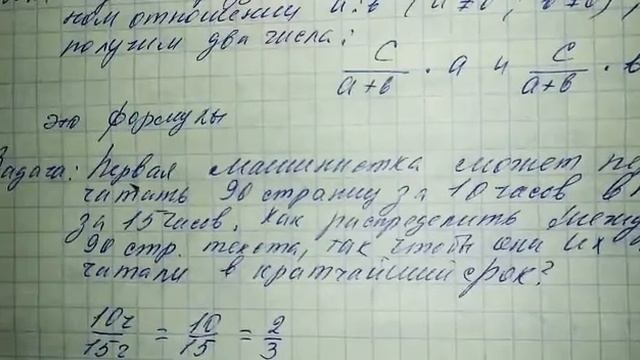 ном отношении a:b
получим два числа:
c/(a+b) · a и c/(a+b) · b
это формулы
Задача: Первая машинистка может пе
чатать 90 страниц за 10 часов в
за 15 часов. Как распределить между
90 стр. текста, так чтобы они их
читали в кратчайший срок?
10ч/15ч = 10/15 = 2/3